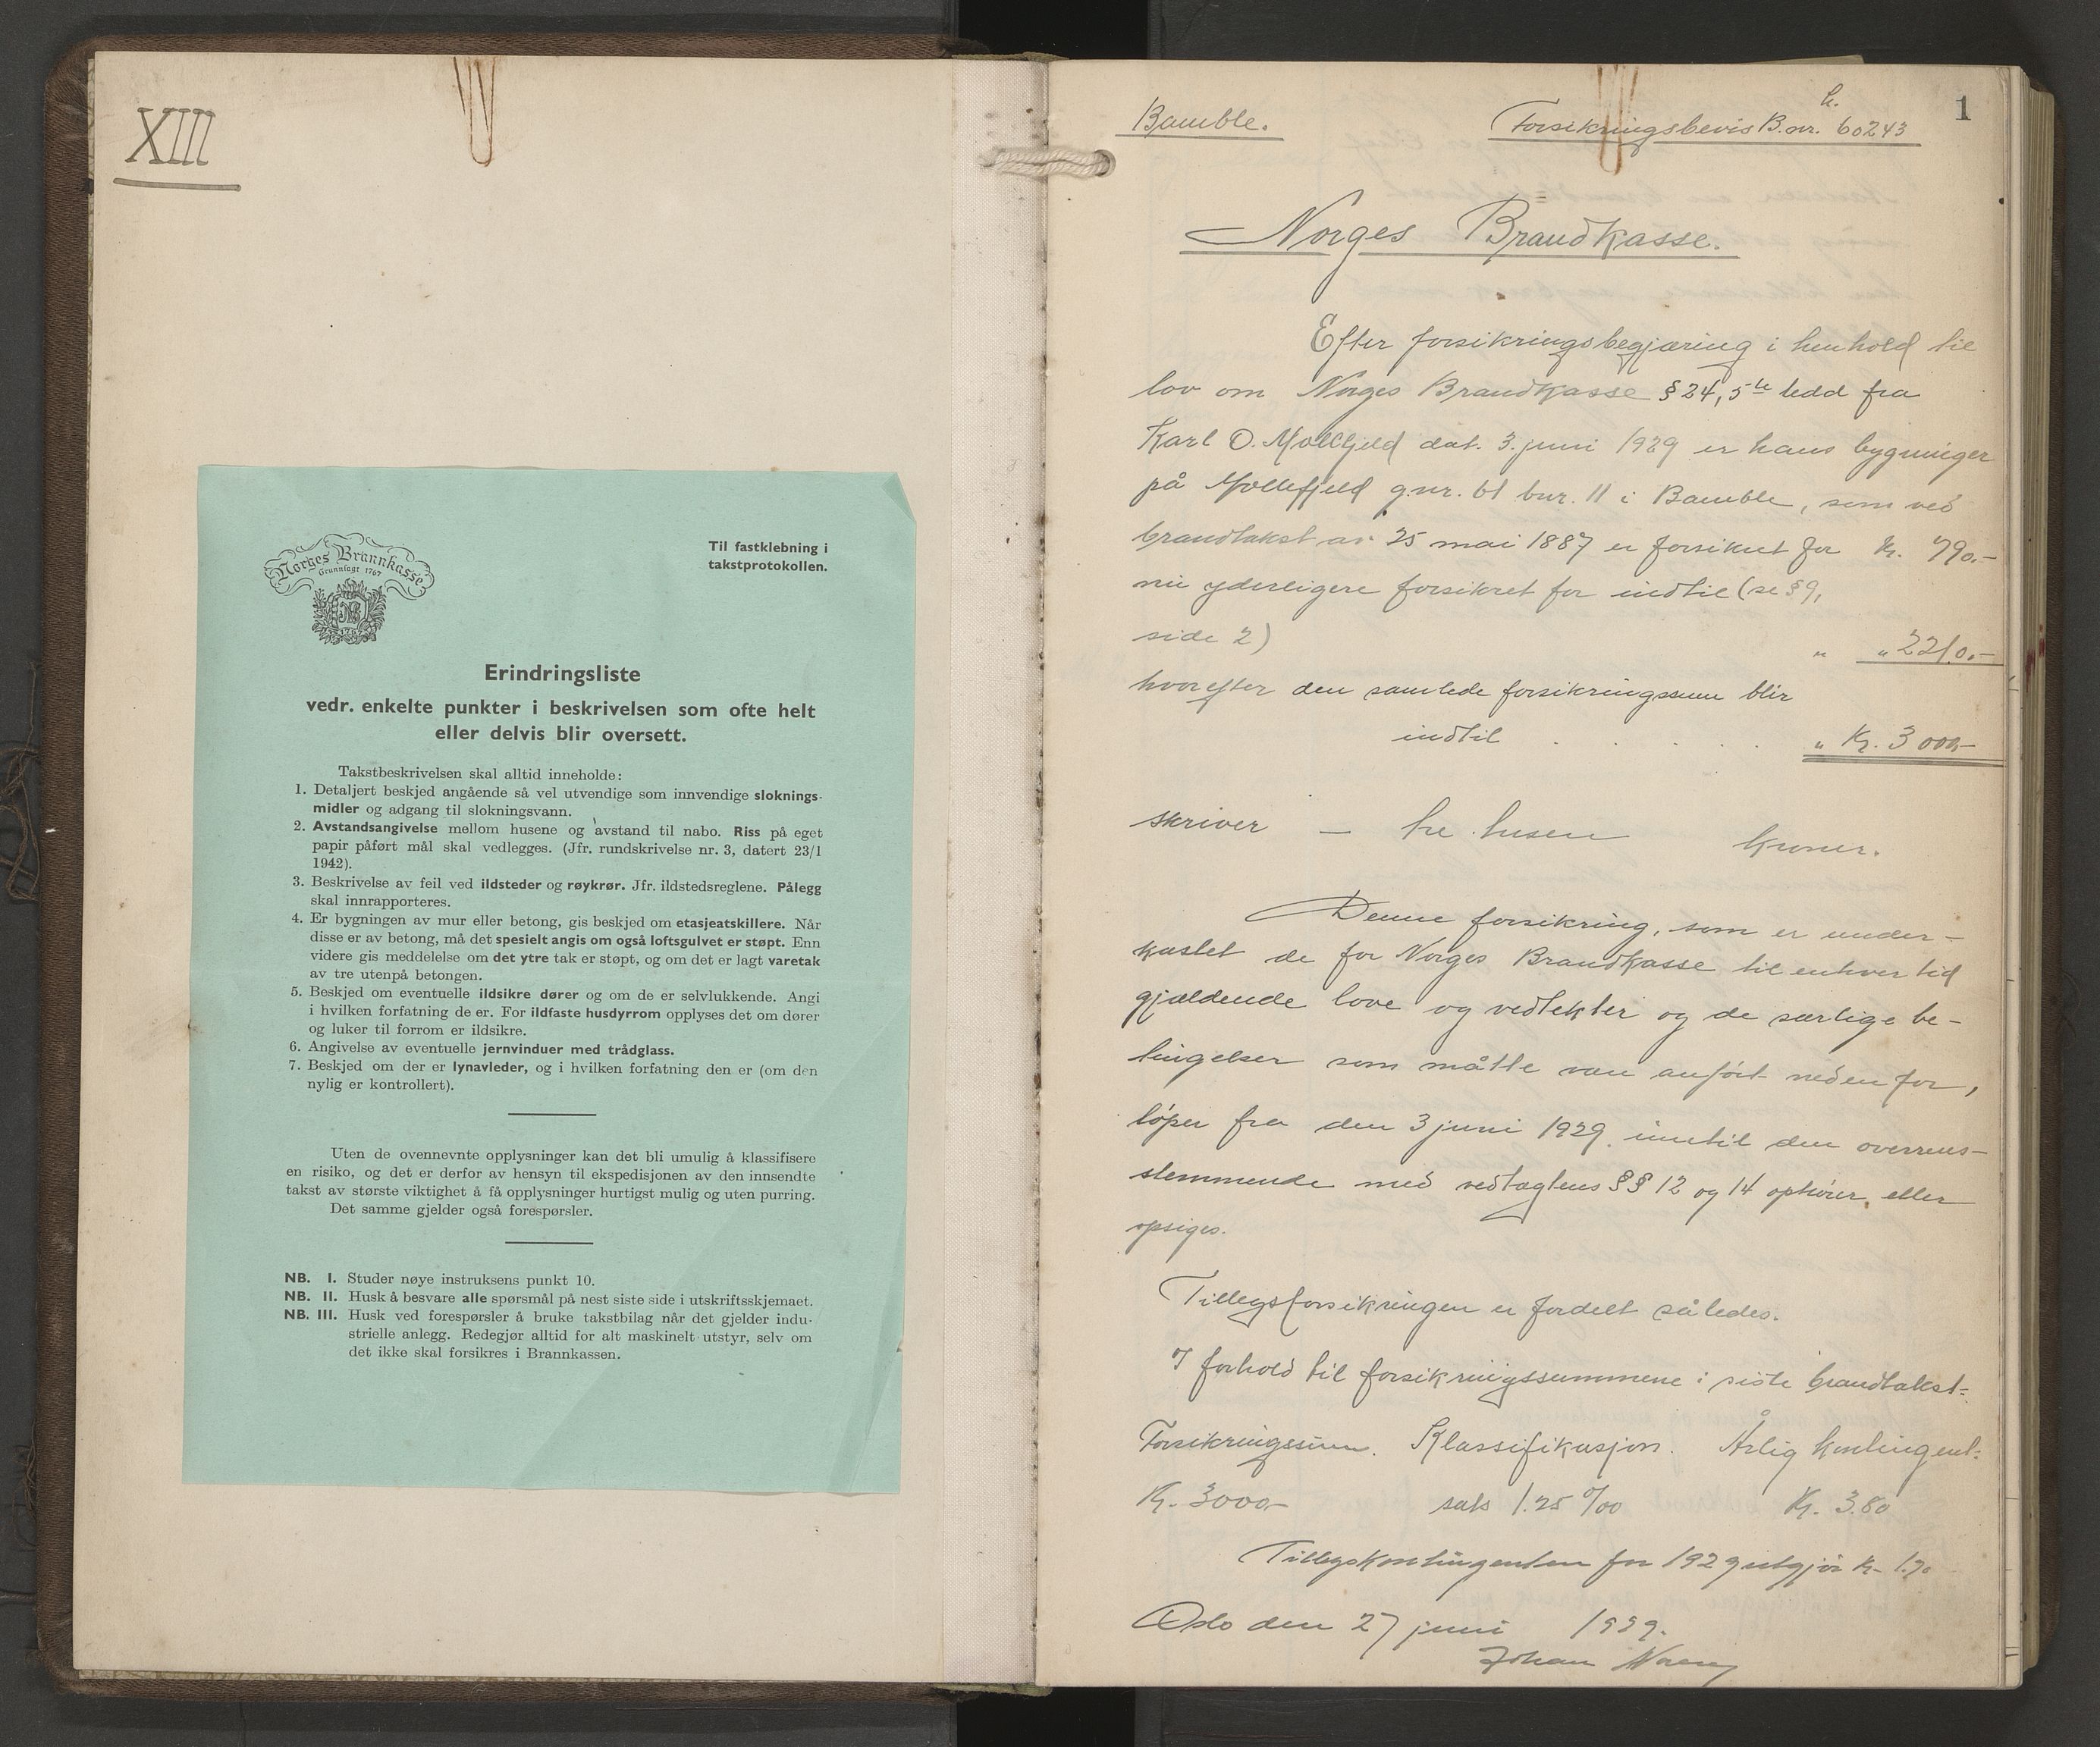 XIII
Norges Brannkasse
Grunnlagt 1767
NB
1767
Til fastklebning i
takstprotokollen.
Erindringsliste
vedr. enkelte punkter i beskrivelsen som ofte helt
eller delvis blir oversett.
Takstbeskrivelsen skal alltid inneholde:
1. Detaljert beskjed angående så vel utvendige som innvendige sloknings-
midler og adgang til slokningsvann.
2. Avstandsangivelse mellom husene og avstand til nabo. Riss på eget
papir påført mål skal vedlegges. (Jfr. rundskrivelse nr. 3, datert 23/1
1942).
3. Beskrivelse av feil ved ildsteder og røykrør. Jfr. ildstedsreglene. Pålegg
skal innrapporteres.
4. Er bygningen av mur eller betong, gis beskjed om etasjeatskillere. Når
disse er av betong, må det spesielt angis om også loftsgulvet er støpt. Enn
videre gis meddelelse om det ytre tak er støpt, og om det er lagt varetak
av tre utenpå betongen.
5. Beskjed om eventuelle ildsikre dører og om de er selvlukkende. Angi
i hvilken forfatning de er. For ildfaste husdyrrom opplyses det om dører
og luker til forrom er ildsikre.
6. Angivelse av eventuelle jernvinduer med trådglass.
7. Beskjed om der er lynavleder, og i hvilken forfatning den er (om den
nylig er kontrollert).
Uten de ovennevnte opplysninger kan det bli umulig å klassifisere
en risiko, og det er derfor av hensyn til ekspedisjonen av den innsendte
takst av største viktighet å få opplysninger hurtigst mulig og uten purring.
Det samme gjelder også forespørsler.
NB. I. Studer nøye instruksens punkt 10.
NB. II. Husk å besvare alle spørsmål på nest siste side i utskriftsskjemaet.
NB. III. Husk ved forespørsler å bruke takstbilag når det gjelder indu-
strielle anlegg. Redegjør alltid for alt maskinelt utstyr, selv om
det ikke skal forsikres i Brannkassen.
1
Bamble. Forsikringsbevis B. nr. 60243
Norges Brandkasse.
Efter forsikringsbegjæring i henhold til
lov om Norges Brandkasse § 24, 5te ledd fra
Karl O. dat. 3. juni 1929 er hans bygninger
på g.nr. 61 bnr. 11 i Bamble, som ved
brandtakst av 25 mai 1887 er forsikret for Kr. 790.-
nu yderligere forsikret for indtil (se § 9,
side 2) " " 2210.-
hvorefter den samlede forsikringssum blir
indtil . . . . . " Kr. 3000,-
skriver — tre tusen kroner.
Denne forsikring, som er under-
kastet de for Norges Brandkasse til enhver tid
gjældende love og vedtekter og de særlige be-
tingelser som måtte være anført nedenfor,
løper fra den 3 juni 1929 inntil den overens-
stemmende med vedtægtens §§ 12 og 14 ophører eller
opsiges.
Tillegsforsikringen er fordelt således.
I forhold til forsikringssummene i siste brandtakst:
Forsikringssum. Klassifikasjon. Årlig kontingent:
Kr. 3000.- sats 1.25 ‰ Kr. 3.80
Tillegskontingenten for 1929 utgjør kr. 1.70
Oslo den 27 juni 1929.
Johan